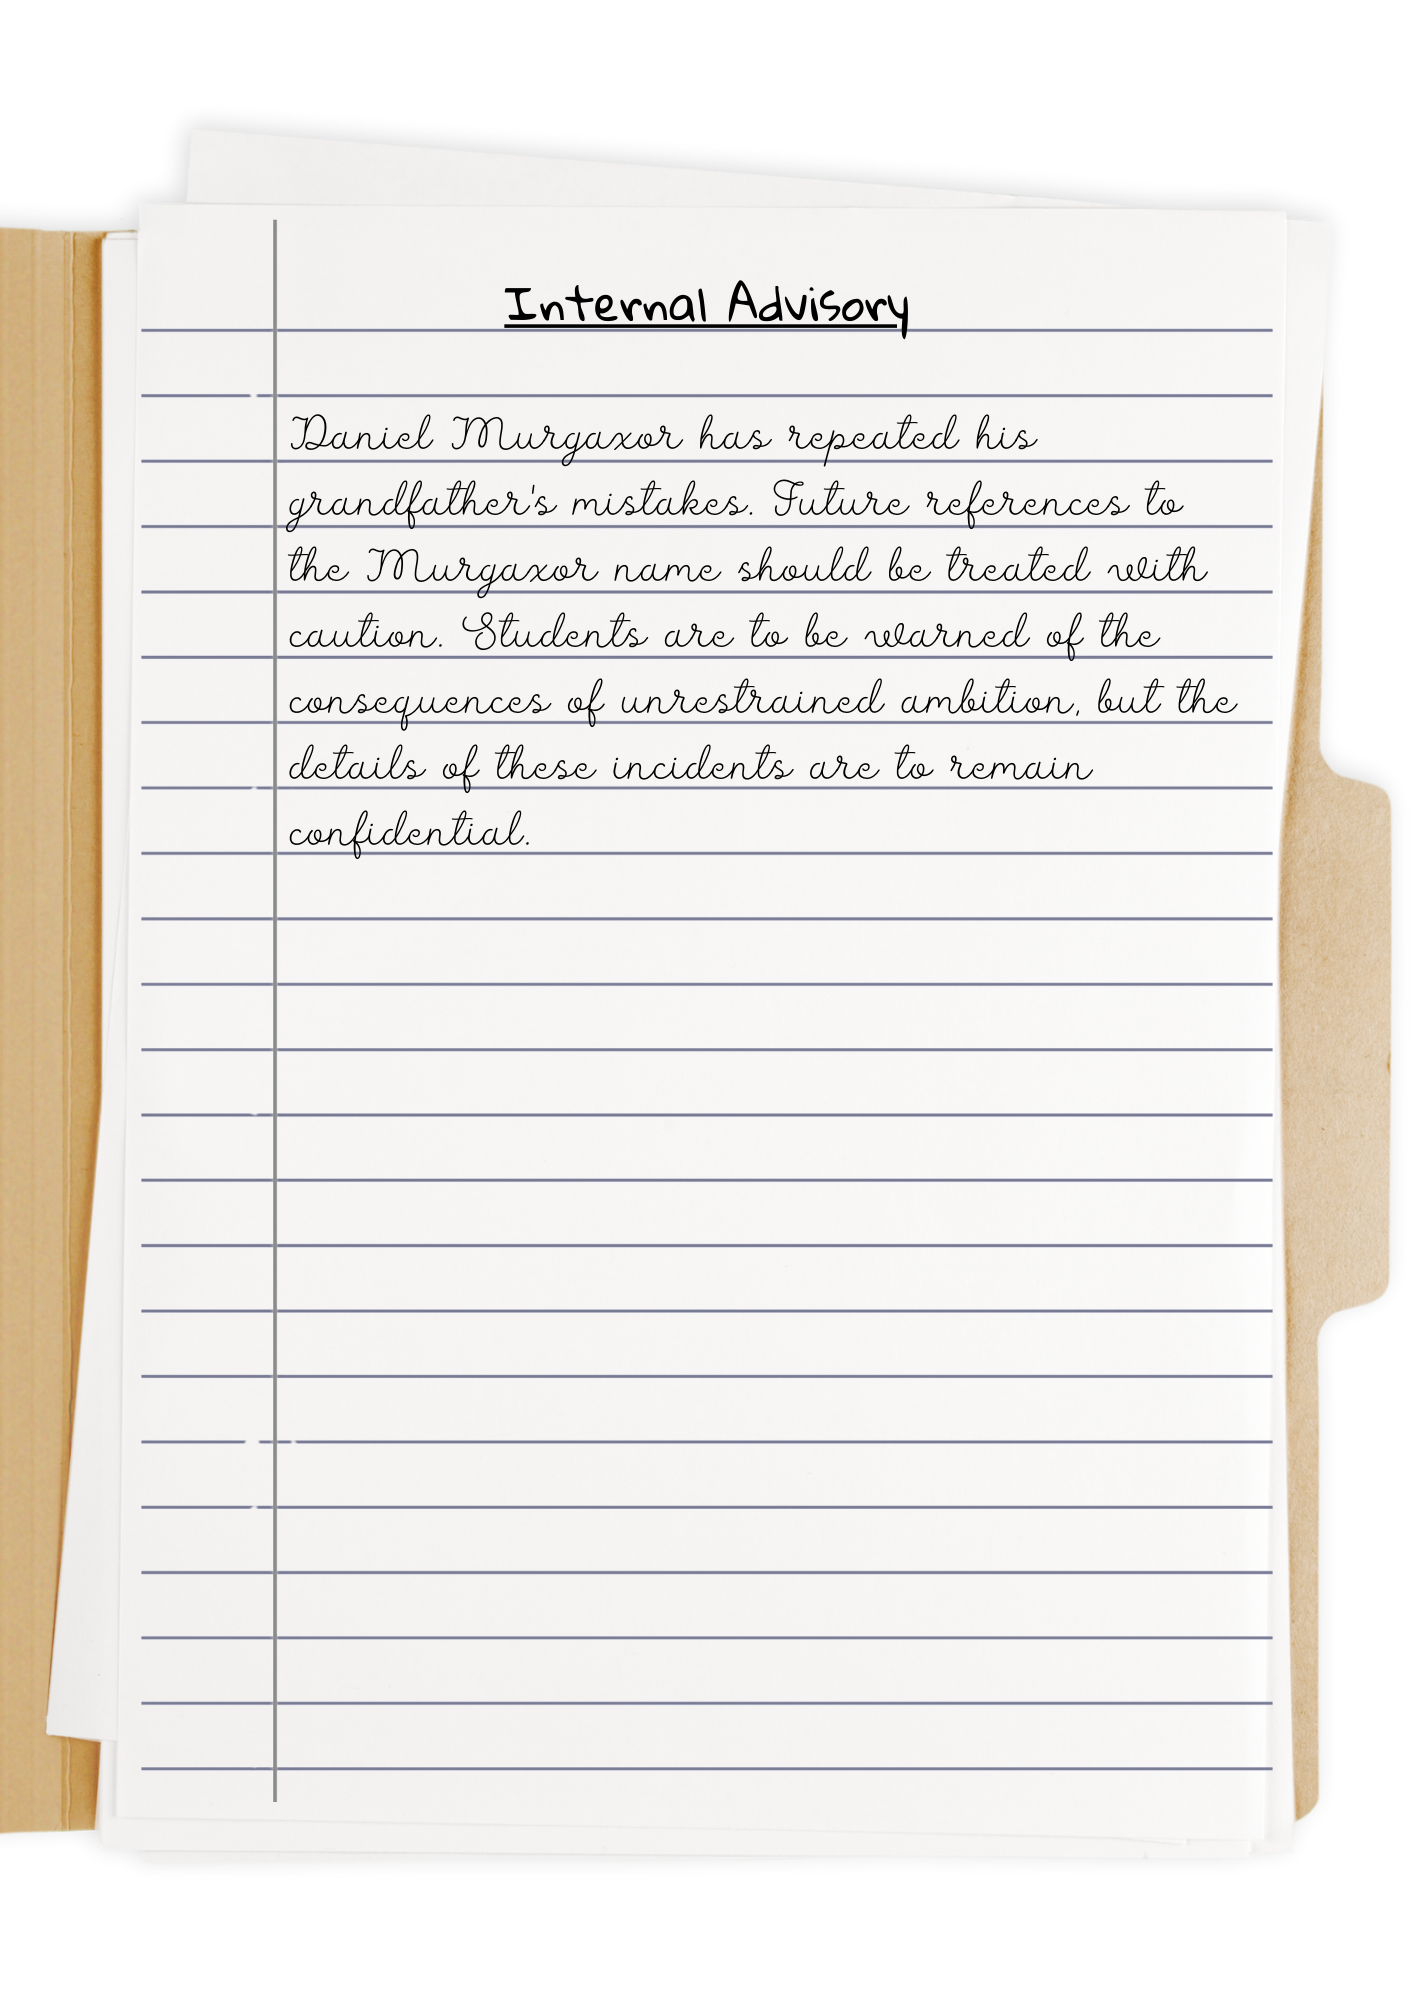 Internal Advisory
Daniel Murgaxor has repeated his
grandfather's mistakes. Future references to
the Murgaxor name should be treated with
caution. Students are to be warned of the
consequences of unrestrained ambition, but the
details of these incidents are to remain
confidential.